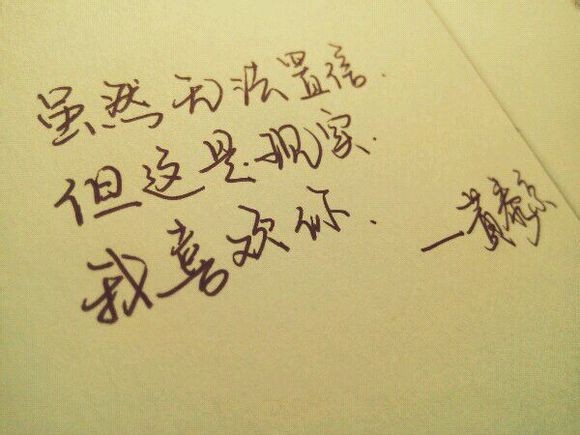 虽然无法置信.
但这是现实.
我喜欢你.
—黄泰京